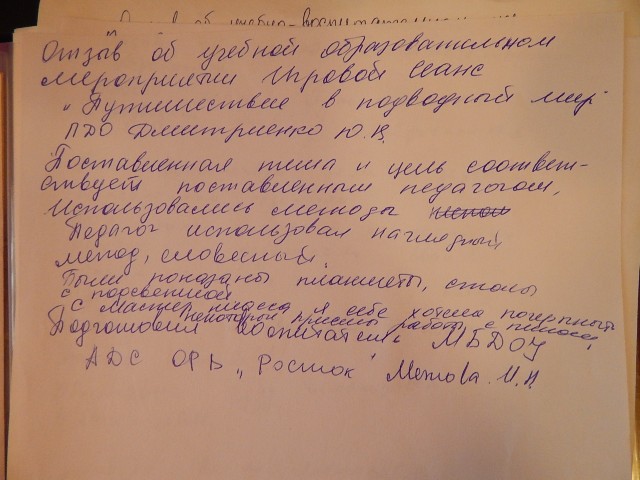 Отзыв об учебной образовательном
мероприятии Игровой сеанс
"Путишествие в подводный мир
ПДО Дмитриенко Ю.Н.
Поставленная тема и цель соответ-
ствует поставленным педагогом,
Использовались методы
Педагог использовал нагледный
метод, словесный.
Были показаны планшеты, столы
с подсветкой
с мастер класса я себе хотела почерпнуть
некоторые приемы работы с песком,
Подготовил воспитатель МБДОУ
АДС ОРВ "Росток" Метова